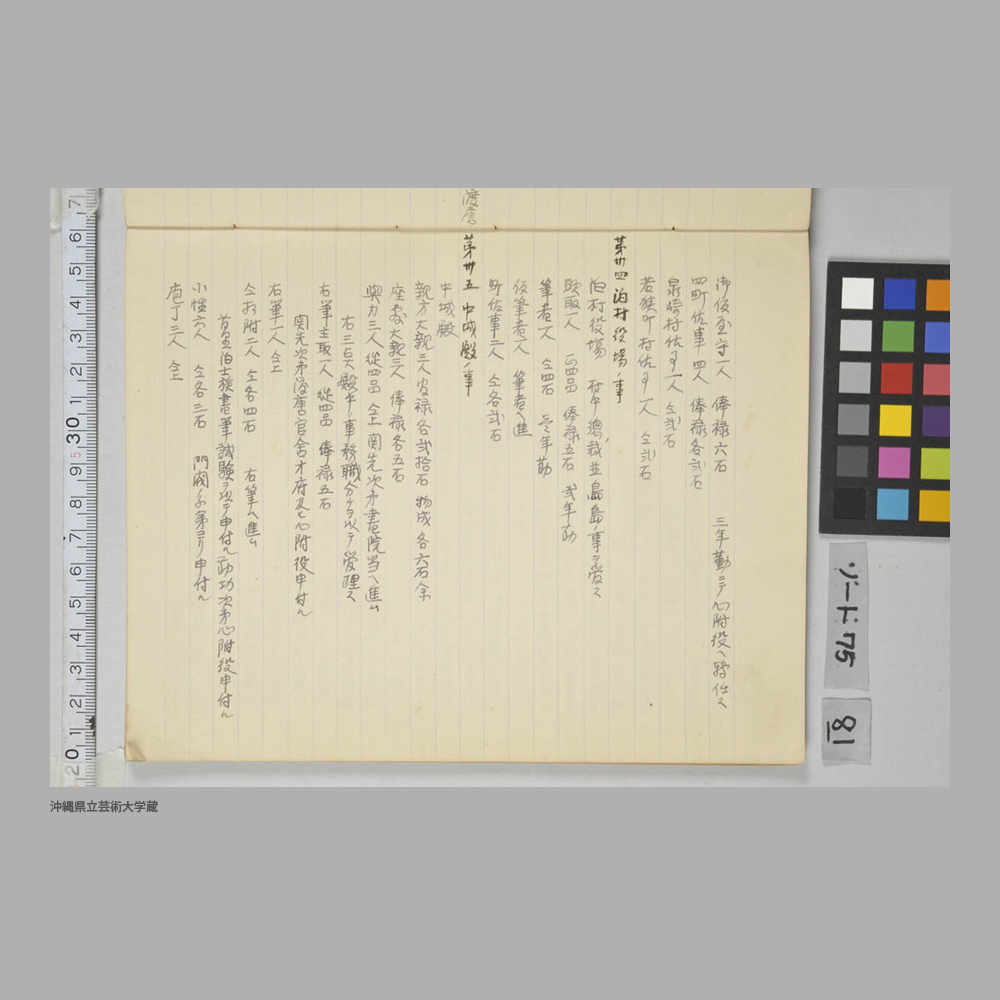 渡唐
御仮屋守一人 俸禄六石 三年勤ニテ心附役ヘ転仕ス
四町佐事 四人 俸禄各弐石
泉崎村佐事一人 仝弐石
若狭町村佐事一人 仝弐石
第卅四 泊村役場ノ事
泊村役場 村中總裁並島島ノ事ヲ掌ス
頭取一人 正四品 俸禄五石 弐年勤
筆者一人 仝四石 年勤
仮筆者一人 筆者ヘ進
所佐事二人 仝各弐石
第卅五 中城殿ノ事
中城殿
親方大親二人 家禄各弐拾石 物成各六石余
座敷大親三人 俸禄各五石
與力三人 從四品 仝上 関先次第書院当ヘ進ム
右三与ハ殿中ノ事務職分ケヲ以テ管理ス
右筆主取一人 從四品 俸禄五石
関先次第渡唐官舎才府及ヒ心附役申付ル
右筆一人 仝上
仝相附二人 仝各四石 右筆ヘ進ム
首里泊士族書筆試験ヲ以テ申付ル 勤功次第心附役申付ル
小性六人 仝各三石 門閥ノ子弟ヨリ申付ル
庖丁三人 仝上
ゾード75
81
沖縄県立芸術大学蔵